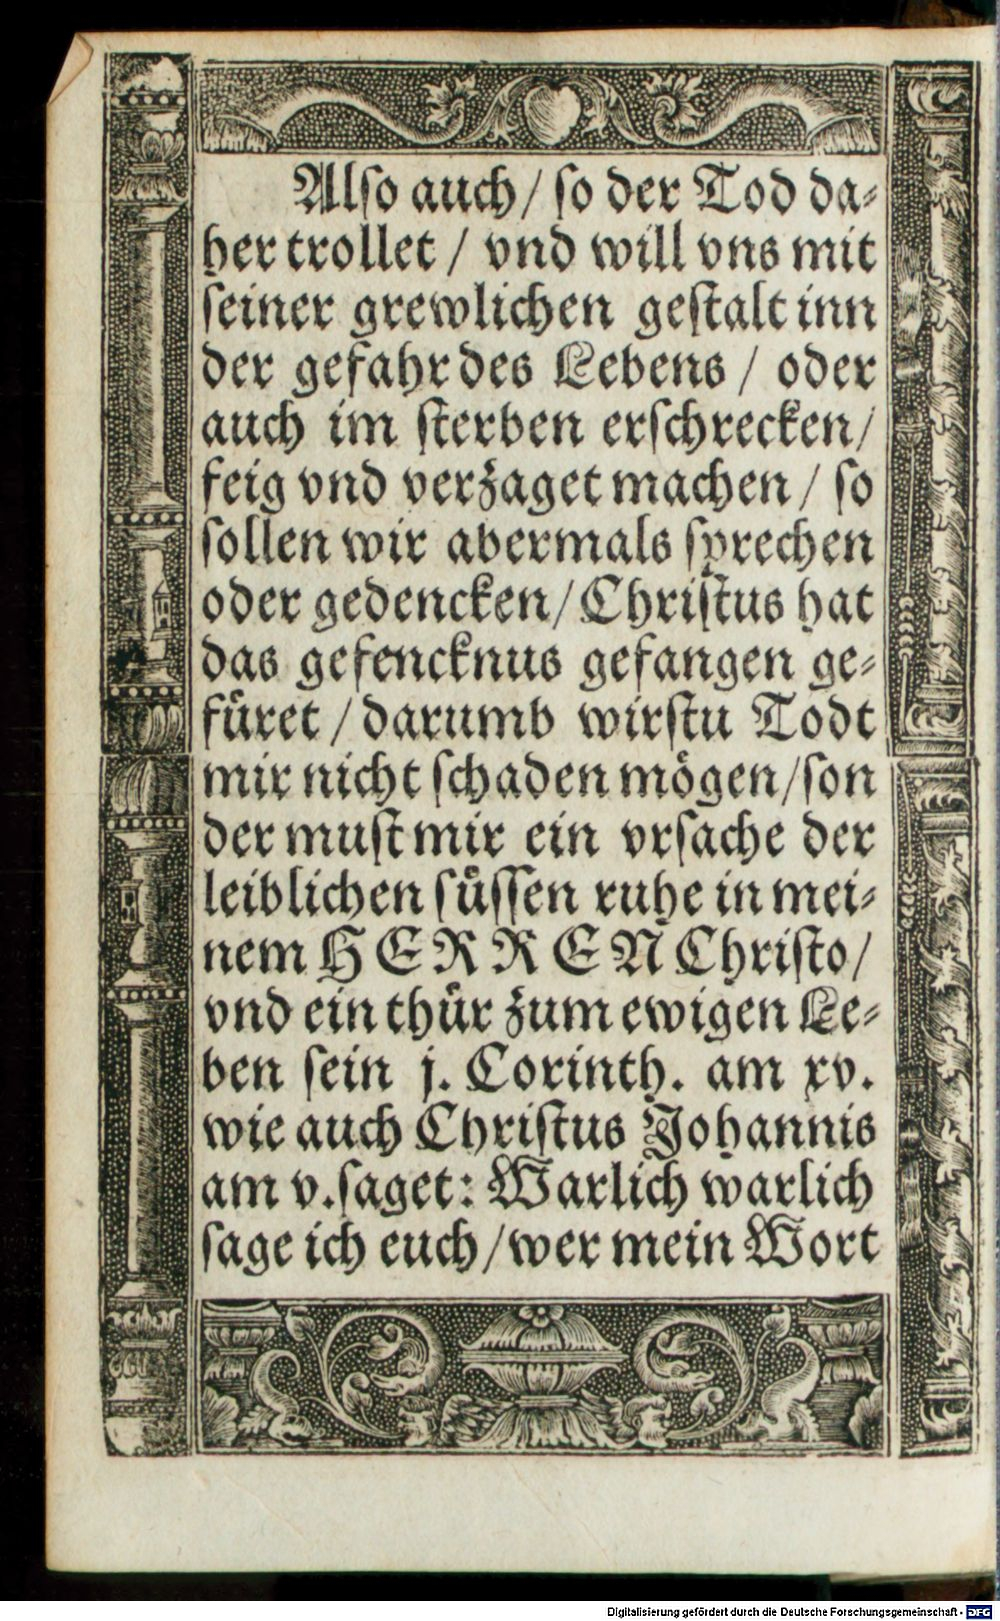 Also auch/ so der Tod da⸗
her trollet / vnd will vns mit
seiner grewlichen gestalt inn
der gefahr des Lebens / oder
auch im sterben erschrecken/
feig vnd verzaget machen / so
sollen wir abermals sprechen
oder gedencken/ Christus hat
das gefencknus gefangen ge⸗
füret / darumb wirstu Todt
mir nicht schaden mögen/son
der must mir ein vrsache der
leiblichen süssen ruhe in mei⸗
nem HERREN Christo/
vnd ein thür zum ewigen Le⸗
ben sein j. Corinth. am xv.
wie auch Christus Johannis
am v. saget: Warlich warlich
sage ich euch/wer mein Wort
Digitalisierung gefördert durch die Deutsche Forschungsgemeinschaft - DFG